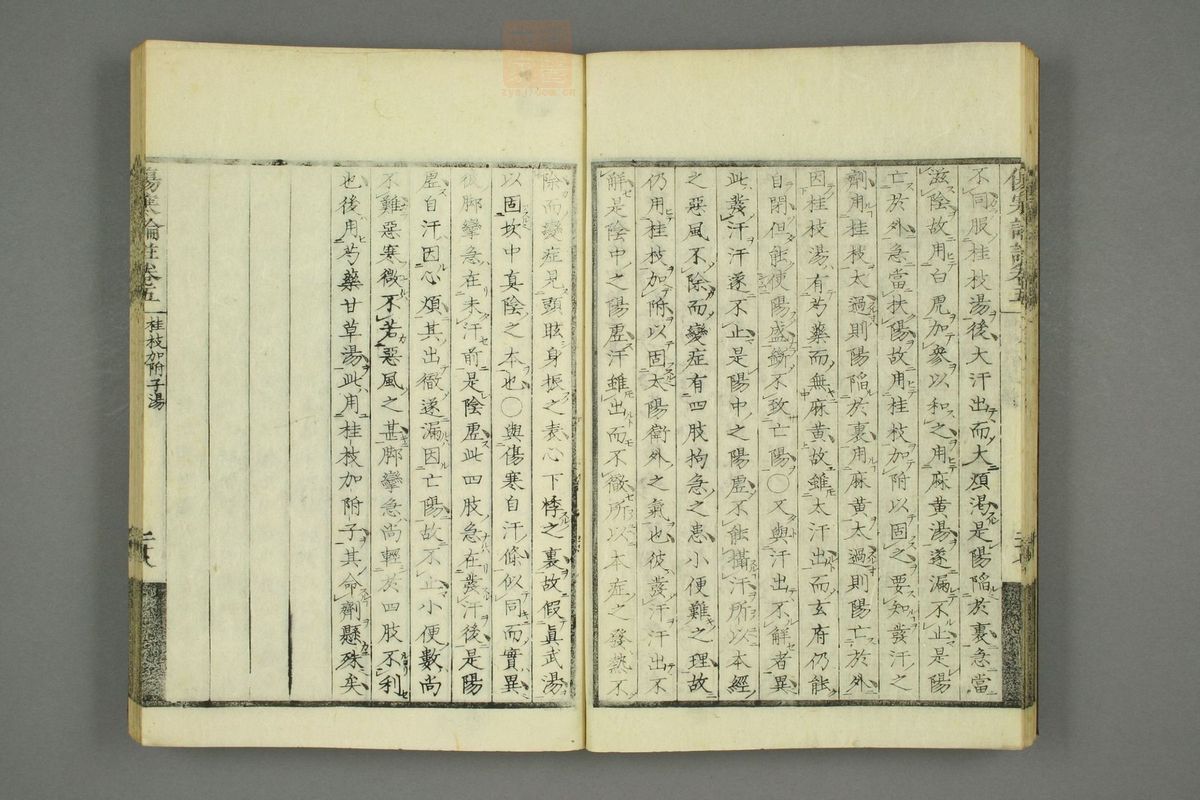 不同服桂枝湯後大汗出而大煩渴是陽陷於裏急當
滋陰故用白虎加參以和之用麻黃湯遂漏不止是陽
亡於外急當扶陽故用桂枝加附以固之要知發汗之
劑用桂枝太過則陽陷於裏用麻黃太過則陽亡於外
因桂枝湯有芍藥而無麻黃故雖大汗出而玄府仍能
自閉但能使陽盛斷不致亡陽〇又與汗出不解者異
此發汗汗遂不止是陽中之陽虛不能攝汗所以本經
之惡風不除而變症有四肢拘急之患小便難之理故
仍用桂枝加附以固太陽衛外之氣也彼發汗汗出不
解是陰中之陽虛汗雖出而不徹所以本症之發熱不
除而變症見頭眩身振之表心下悸之裏故假眞武湯
以固坎中真陰之本也〇與傷寒自汗條似同而實異
彼脚攣急在未汗前是陰虛此四肢急在發汗後是陽
虛自汗因心煩其出徹遂漏因亡陽故不止小便數尚
不難惡寒微不若惡風之甚脚攣急尚輕於四肢不利
也後用芍藥甘草湯此用桂枝加附子其命劑懸殊矣
傷寒論註卷五
桂枝加附子湯